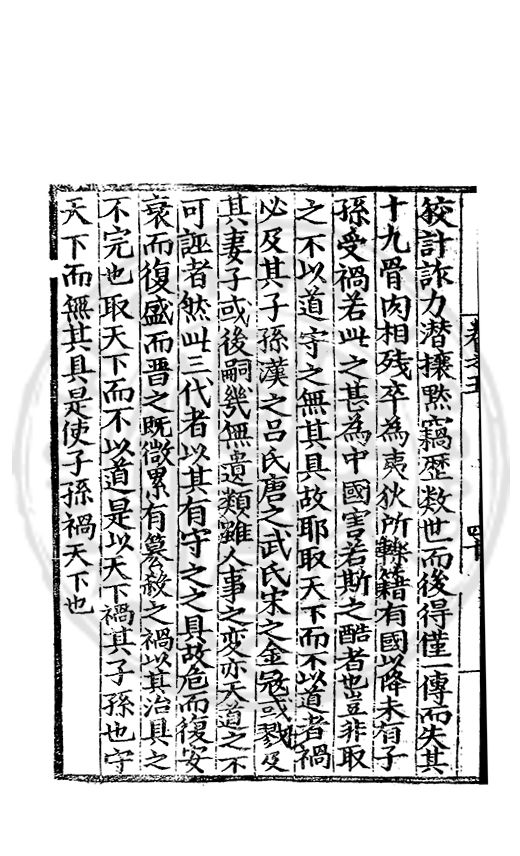 狡計詐力潜攘黙竊歴数世而後得僅一傳而失其
十九骨肉相残卒為夷狄所轔籍有國以降未有子
孫受禍若此之甚為中國害若斯之酷者也豈非取
之不以道守之無其具故耶取天下而不以道者禍
必及其子孫漢之呂氏唐之武氏宋之金冦或戮及
其妻子或後嗣幾無遺類雖人事之変亦天道之不
可誣者然此三代者以其有守之之具故危而復安
衰而復盛而晋之既微累有簒殺之禍以其治具之
不完也取天下而不以道是以天下禍其子孫也守
天下而無其具是使子孫禍天下也
卷之五